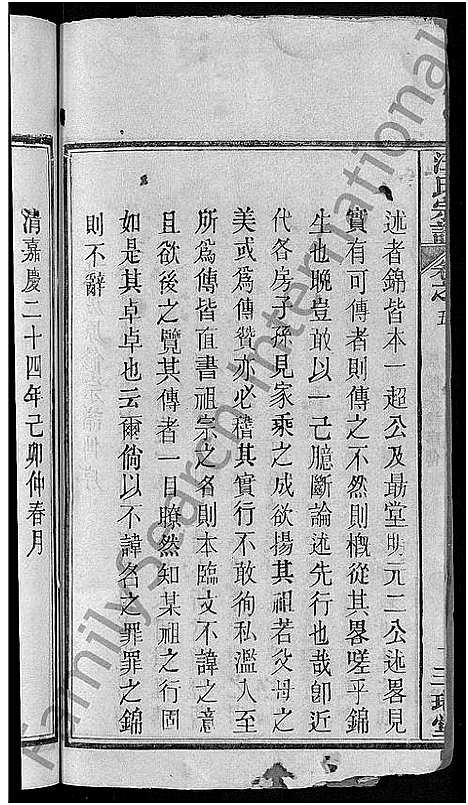 汪氏宗譜
卷之五
述者錦皆本一超公及勗堂明元二公述畧見
實有可傳者則傳之不然則概從其畧嗟乎錦
生也晚豈敢以一己臆斷論述先行也哉卽近
代各房子孫見家乘之成欲揚其祖若父母之
美或爲傳贊亦必稽其實行不敢徇私濫入至
所爲傳皆直書祖宗之名則本臨文不諱之意
且欲後之覽其傳者一目瞭然知某祖之行固
如是其卓卓也云爾倘以不諱名之罪罪之錦
則不辭
清嘉慶二十四年己卯仲春月
FamilySearch International